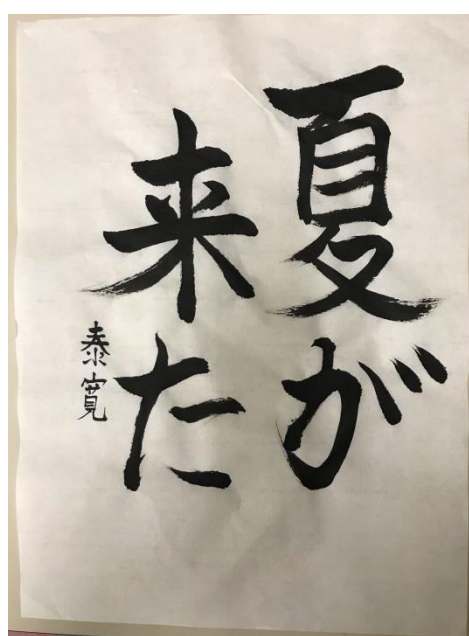 夏が
来た
泰寛